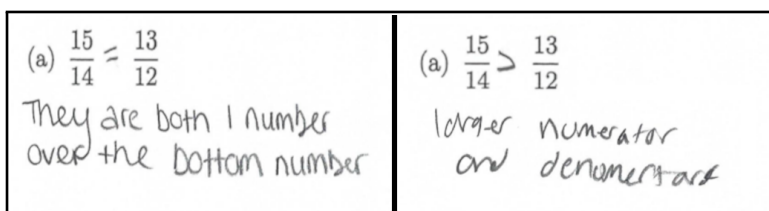 (a) 15/14 = 13/12
They are both 1 number
over the bottom number
(a) 15/14 > 13/12
larger numerator
and